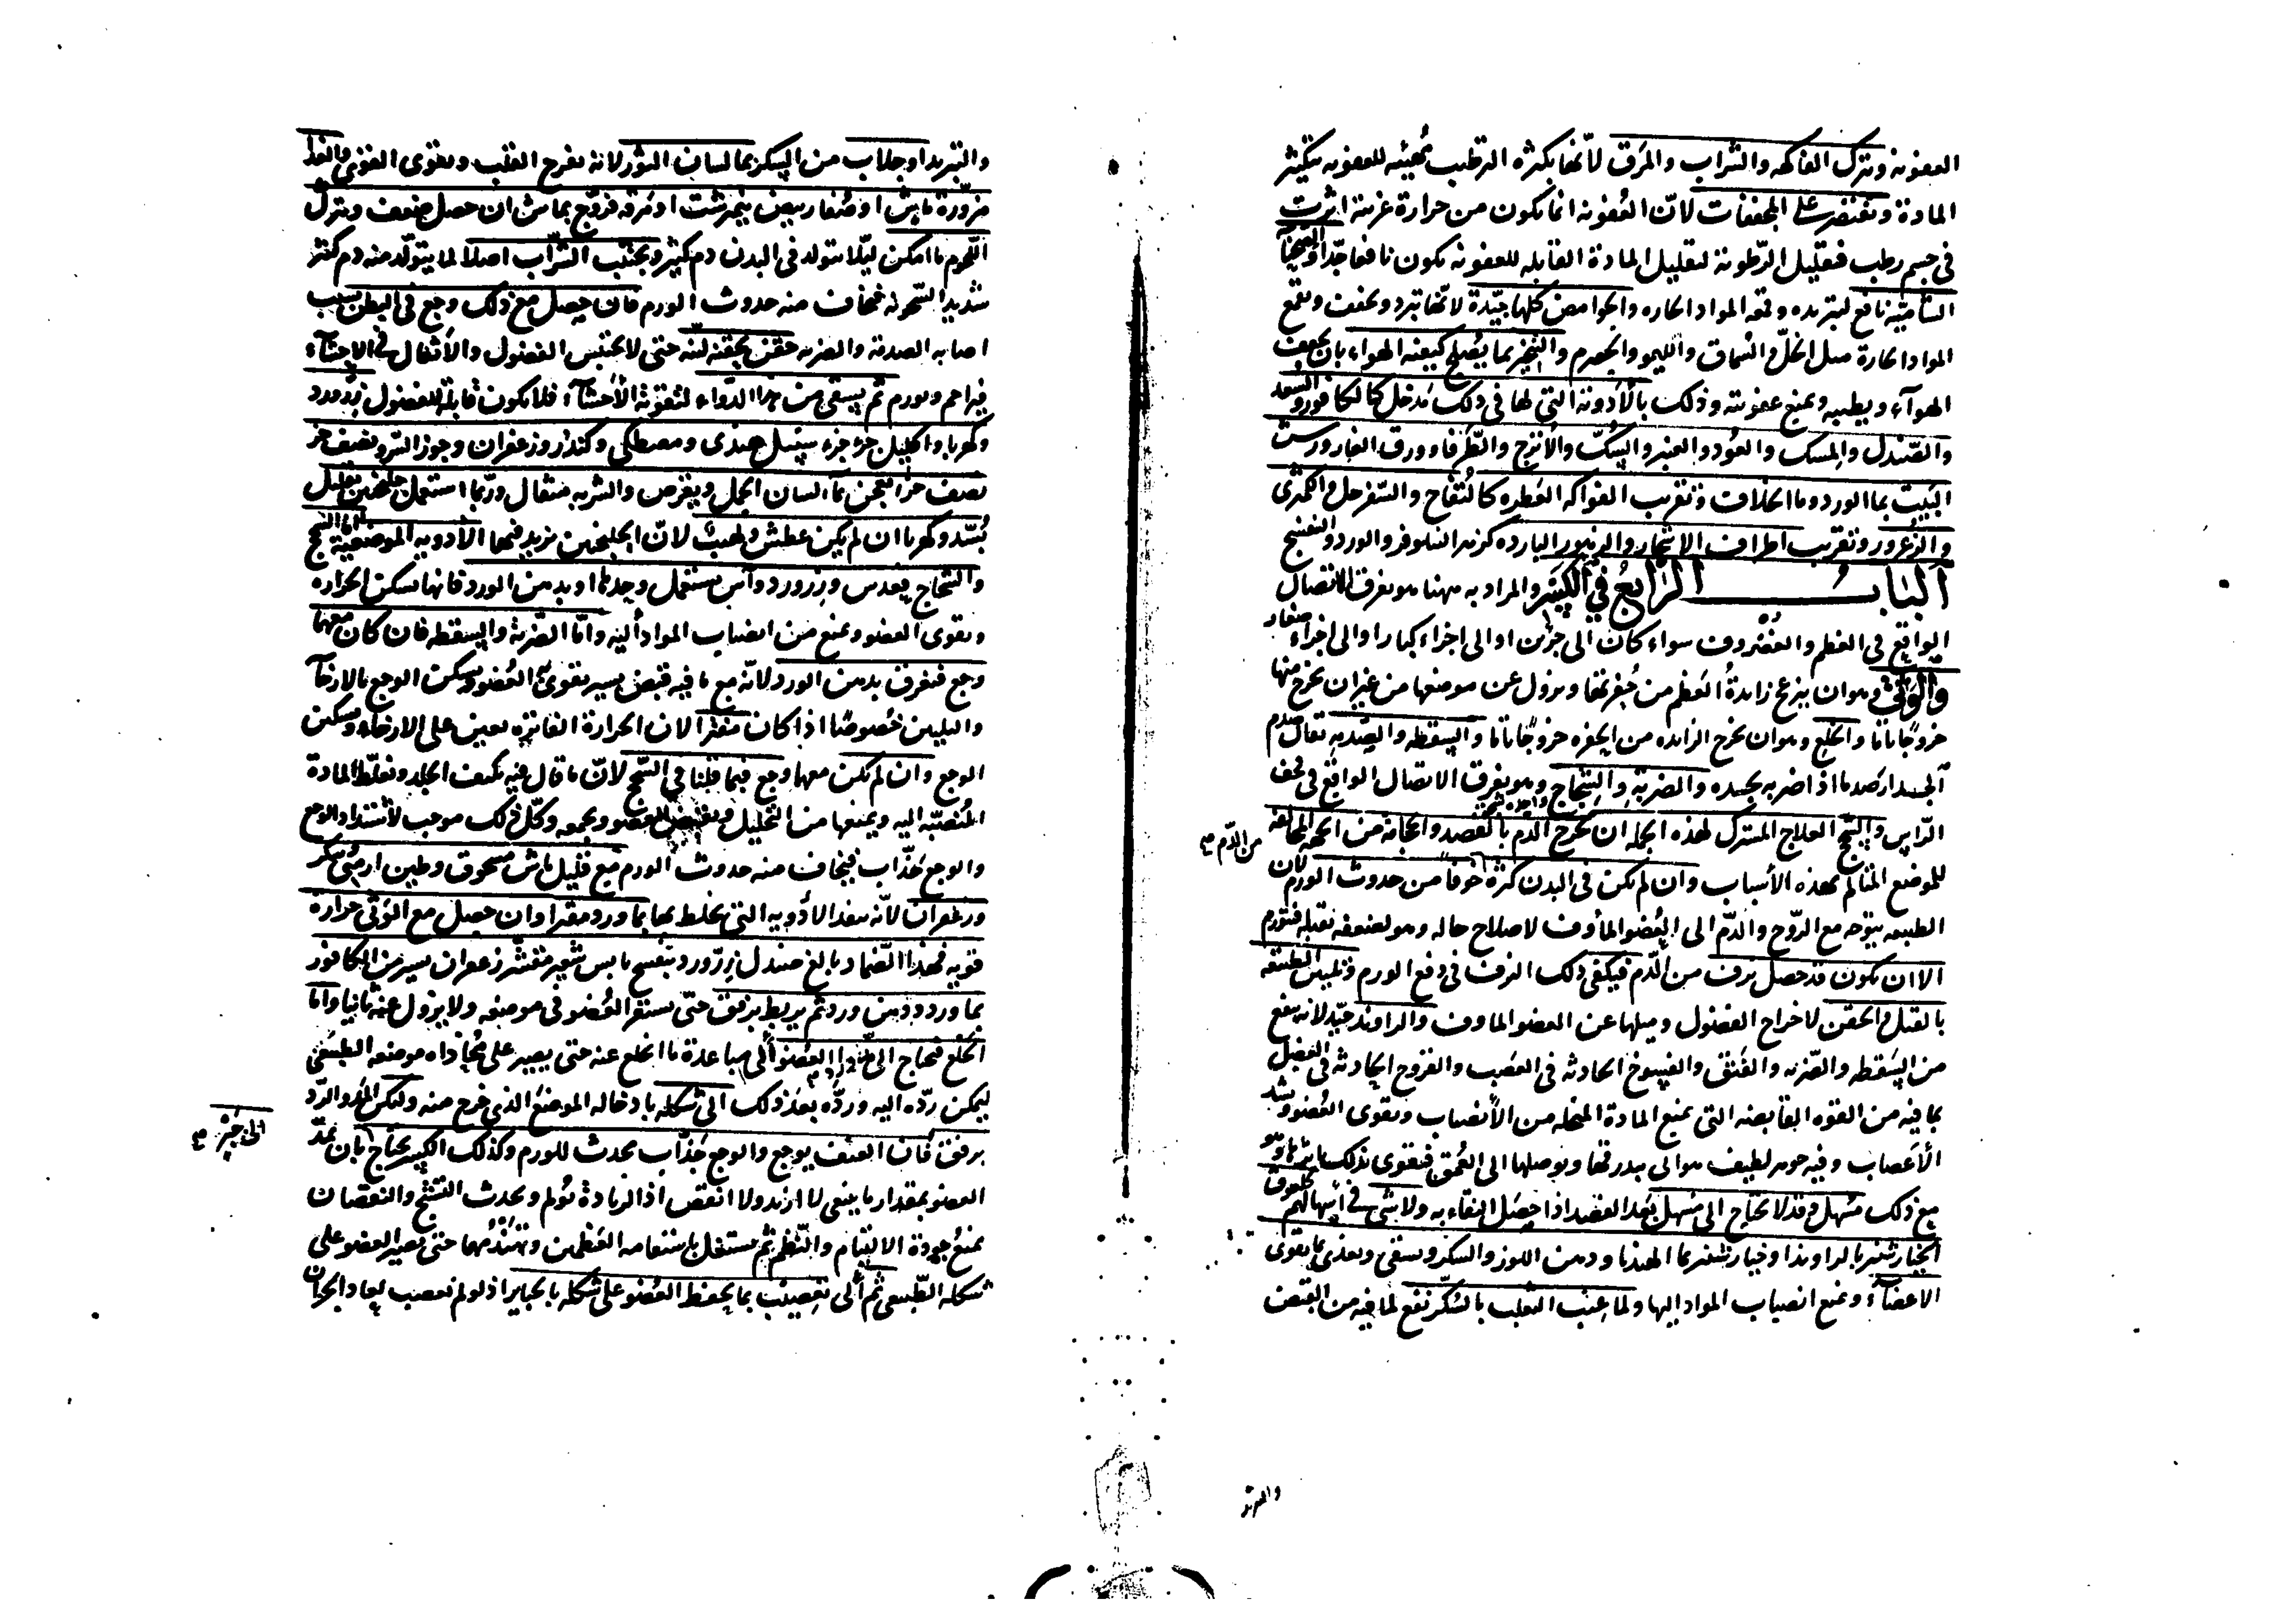 العفونة وترك الفاكهه والشراب والمرق لانها بكثرة الترطيب مهيئه للعفونه بتكثير
المادة وتقتصر على المجففات لانّ العفونه انما تكون من حرارة غريبة اثرت
في جسم رطب فتقليل الرّطوبة لتقليل المادة القابله للعفونه تكون نافعا جدّا
نافع لتبريده وقمعه المواد الحاره والحوامض كلها جيّدة لانّها تبرد وتجفف وتقمع
المواد الحارة مثل الخلّ والسّماق والليمو والحصرم والتبخير بما يُصلح كيفية الهواء بان يجفف
الهوآء ويطيبه ويمنع عفونته وذلك بالأدوية التي لها في ذلك مدخل كالكافور والسعد
والصّندل والمسك والعود والعنبر والسُّكّ والأترج والطّرفاء وورق الغار ورش
البَيت بماالورد وماالخلاف وتقريب الفواكه العَطِره كالتفاح والسّفرجل والكمثرى
والزعرور وتقريب اطراف الاشجار والزهور البارده كزهر النيلوفر والورد والبنفسج
اَلبَابُ الرَّابعُ في اَلكَسْر والمراد به ههنا هو تفرق الاتصال
الواقع في العظم والغضروف سواء كان الى جزئين او الى اجزاء كبار او الى اجزاء صغار
والوَثْى وهو ان ينزعج زايدة العَظم من حُفرتها ويزول عن موضعها من غير ان يخرج منها
خروجًا تامّا والخلع وهو ان تخرج الزايده من الحفره خروجًا تامّا والسقطه والصّدمه يقال صدم
الجدار صدما اذا ضربه بجسده والضربة والشِّجاج وهو تفرق الاتصال الواقع في قحف
الرّاس والسَّحج العلاج المشترك لهذه الجمله ان تخرج الدم بالفصد والحجامة من الجهة المخالفه
من الدّم صح
للموضع المتالم بهذه الأسباب وان لم يكن في البدن كثرة خوفا من حدوث الورم لان
الطبيعه يتوجه مع الرّوح والدّم الى العُضو المأوف لاصلاح حاله وهو لضعفه يقبله فيتورم
الا ان يكون قد حصل نزف من الدّم فيكفي ذلك النزف في دفع الورم وتليين الطبيعه
بالفتل والحقن لاخراج الفضول وميلها عن العضو الماوف والراوند جيّد لانه ينفع
من السَّقطه والضّربه والفَتق والفسوخ الحادثه في العَصب والقروح الحادثه في العضل
بما فيه من القوه القابضه التي يمنع المادة المنحله من الأنصباب ويقوى العُضو ويشد
الأعصاب وفيه جوهر لطيف هوائى يبدرقها ويوصلها الى العُمق فتقوى بذلك
مع ذلك مسهل وقد لا يحتاج الى مُسهل بَعد الفصد اذا حصَل النقاء به ولا شى في اسهالهم كلعوق
الخيارشنبر بالراوند او خيارشنبر بما الهندبا ودهن اللوز والسكر ويسقى ويغذى بما يقوى
الاعضآء ويمنع انصباب المواد اليها ولما عنب الثعلب بالسُّكّر نفع لما فيه من القبض
والتبريد
والتبريد او جلاب من السكر بما لسان الثور لانه يفرح القلب ويقوى القوى والغذا
مزورة ماش او صفار بيض نيمرشت او مرقه فرّوج بماش ان حصل ضعف ويترك
اللّحوم ما امكن ليّلا يتولد في البدن دم كثير ويجتنب الشّراب اصلا لما يتولّد منه دم كثير
شديد السّخونه فيخاف منه حدوث الورم فان حصل مع ذلك وجع في البطن بسبب
اصابه الصدمه والضربه حقن بحقنه ليّنه حتى لا يحتبس الفضول والأثفال في الاحشآء
فيزاحم ويورم ثم يسقى من هذا الدّواء لتقوية الأحشآء فلا يكون قابلة للفضول زرورد
وكهربا واكليل جزء جزء سنبل هندى ومصطكى وكندر وزعفران وجوز السّرو نصف جزء
نصف جزء تعجن بماء لسان الحمل ويقرّص والشربه مثقال وربما استعمل جلنجبين بقليل
بُسّد وكهربا ان لم يكن عطش ولهيب لانّ الجلنجبين يزيد فيهما الأدويه الموضعية امّا السَّحج
والشّجاج بعدس وزرورد وآس يستعمل وحدها او بدهن الورد فانها يسكن الحراره
ويقوى العضو ويمنع من انصباب المواد اليه وامّا الضّربة والسقطه فان كان معهما
وجع فيغرق بدهن الورد لانّه مع ما فيه قبض يسير يقوى العُضو ويسكن الوجع بالارخآء
والتليين خصوصًا اذا كان مفترا لان الحرارة الفاتره يعين على الارخاء ويسكن
الوجع وان لم يكن معها وجع فبما قلنا في السَّحج لانّ ما قال فيه يكثف الجلد ويغلّظ المادة
المُنصبّه اليه ويمنعها من التحليل ويقبض العضو ويجمعه وكلّ ذلك موجب لأشتداد الوجع
والوجع جذّاب فيخاف منه حدوث الورم مع قليل ماش مسحوق وطين ارمنى سكر
وزعفران لانّه ينفذ الأدويه التي يخلط بها بماورد مفترا وان حصل مع الوثى حرارة
قويه فهذا الضّماد بالغ صندل زرّورد بنفسج يابس شعير مقشر زعفران يسير من الكافور
بماورد ودهن ورد ثم يربط برفق حتّى يستقر العُضو في موضعه ولا يزول عنه ثانيا وامّا
الخلع فيحتاج الى مدّ العضو الى مباعدة ما انخلع عنه حتى يصير على مُحاذاه موضعه الطبيعى
ليمكن ردّه اليه وردّه بعد ذلك الى شكله بادخاله الموضع الذي خرج منه وليكن المدّ والردّ
برفق فان العنف يوجع والوجع جَذّاب محدث للورم وكذلك الكسر يحتاج بان يمدّ
الى جَبْر صح
العضو بمقدار ما ينبغى لا ازيد ولا انقص اذ الزيادة تُولم ويحدث التشنج والنقصان
يمنع جودة الالتيام والنّظم ثم يستقل باستقامه العَظمين وتهندُمهما حتى يصير العضو على
شكله الطّبيعى ثم الى تعصيبت بما يحفظ العُضو على شكله بالجباير اذ لو لم تعصب